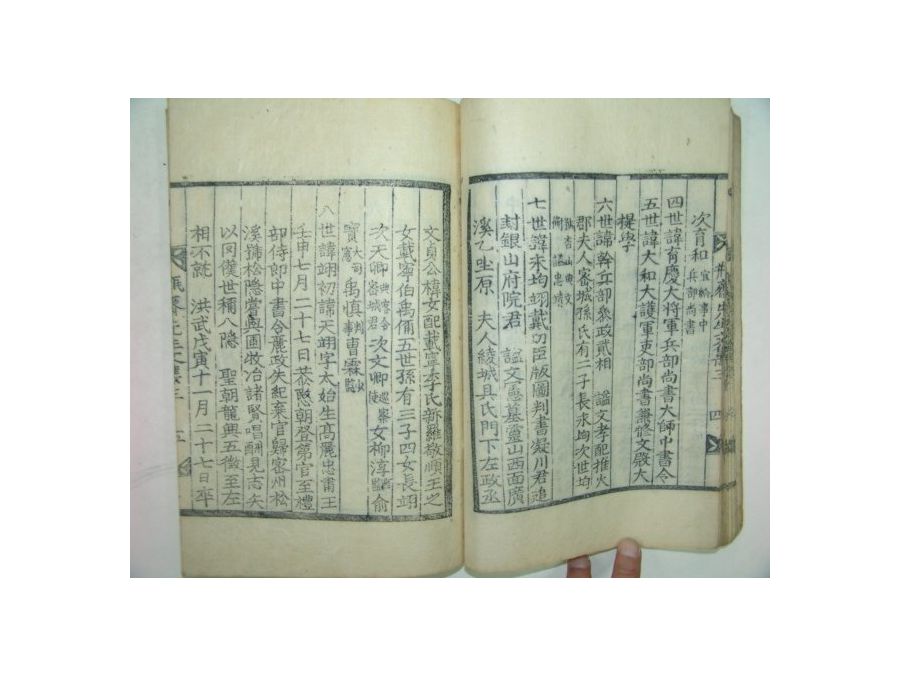 次育和 宜給事中 兵部尚書
四世諱育慶大將軍兵部尚書大師中書令
五世諱大和大護軍吏部尚書兼修文殿大
提學
六世諱幹兵部叅政貳相 謚文孝配推火
郡夫人密城孫氏有二子長永均次世均
七世諱永均翊戴功臣版圖判書凝川君追
封銀山府院君 謚文憲墓靈山西面廣
溪乙坐原 夫人綾城具氏門下左政丞
文貞公 女配載寧李氏新羅敬順王之
女載寧伯禹偁五世孫有三子四女長翊
次天卿 密城君 次文卿 女柳淳 俞
寶 大司憲 禹愼 判 曺霖
八世諱翊初諱天翊字太始生高麗忠肅王
壬申七月二十七日恭愍朝登第官至禮
部侍郎中書令麗政失紀棄官歸密州松
溪號松隱嘗與圃牧冶諸賢唱酬見志矢
以罔僕世稱八隱 聖朝龍興五徵至左
相不就 洪武戊寅十一月二十七日卒